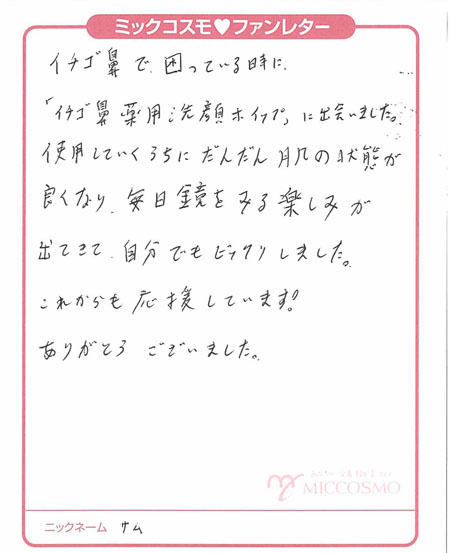 ミックコスモ♥ファンレター
イチゴ鼻で、困っている時に、
「イチゴ鼻 薬用洗顔ホイップ」に出会いました。
使用していくうちにだんだん肌の状態が
良くなり、毎日鏡をみる楽しみが
出てきて、自分でもビックリしました。
これからも応援しています!
ありがとう ございました。
MICCOSMO
ニックネーム サム